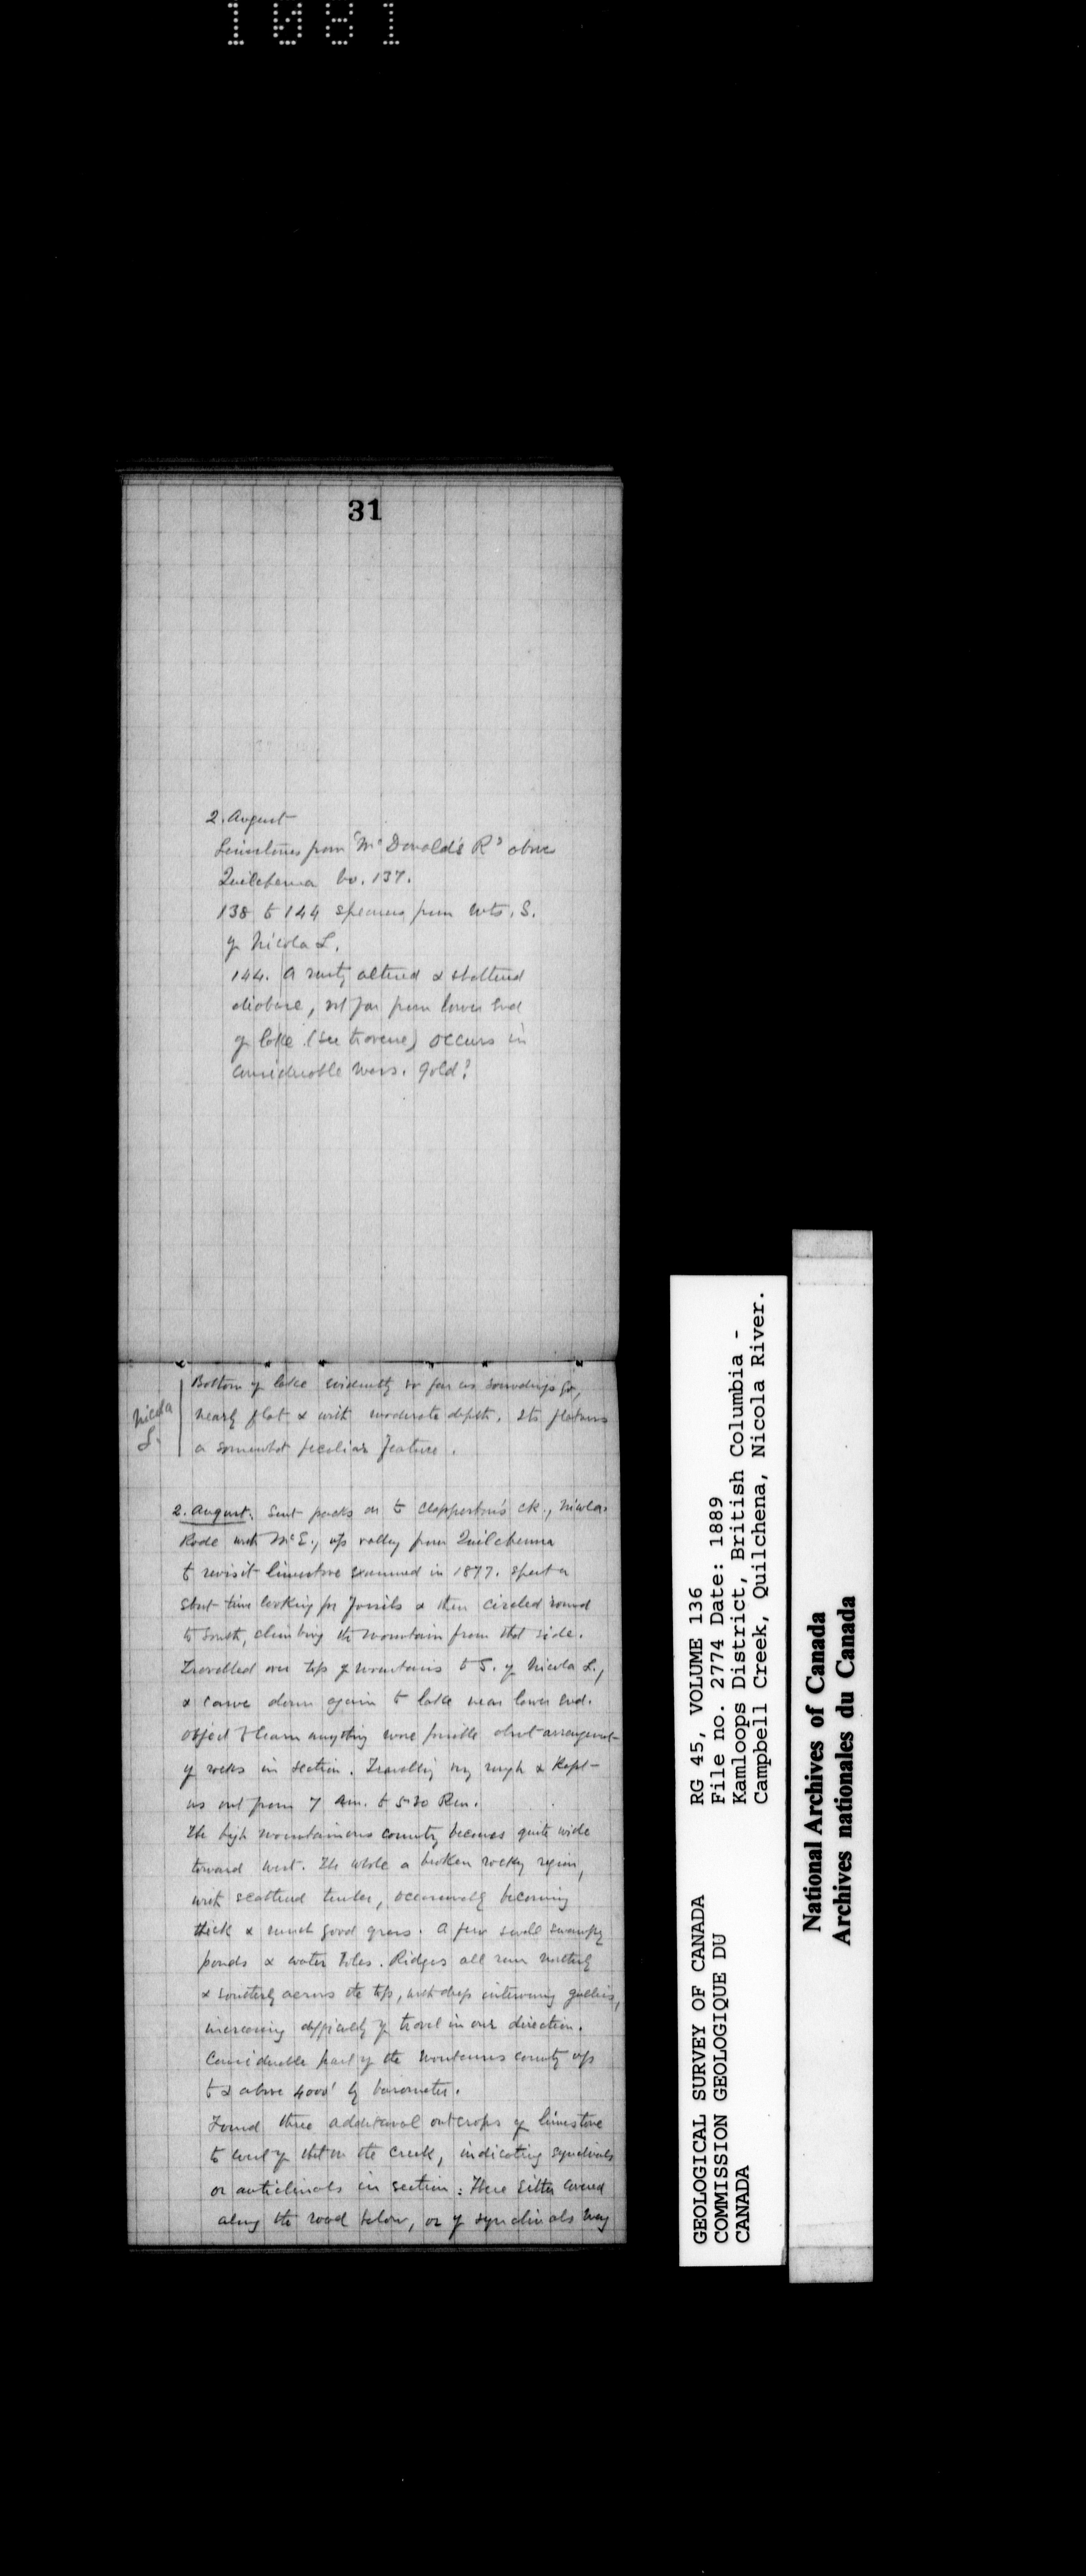 1081
31
2. August
Limestones from "McDonald's R" above
Quilchenna No. 137.
138 to 144 specimens from mts. S.
of Nicola L.
144. A rusty altered & shattered
diabase, not far from lower end
of lake (see traverse) occurs in
considerable mass. Gold?
Nicola
L.
Bottom of lake evidently so far as soundings go,
nearly flat & with moderate depth. Its flatness
a somewhat peculiar feature.
2. August. Sent packs on to Clapperton's Ck., Nicola.
Rode with McE., up valley from Quilchenna
to revisit limestone examined in 1877. Spent a
short time looking for fossils & then circled round
to South, climbing the mountain from that side.
Travelled over tops of mountains to S. of Nicola L.,
& came down again to lake near lower end.
Object to learn anything more possible about arrangement
of rocks in section. Travelling very rough & kept
us out from 7 Am. to 5.30 Pm.
The high mountainous country becomes quite wide
toward west. The whole a broken rocky region,
with scattered timber, occasionally becoming
thick & much good grass. A few small swampy
ponds & water holes. Ridges all run northerly
& southerly across the top, with deep intervening gullies,
increasing difficulty of travel in our direction.
Considerable part of the mountainous country up
to & above 4000' by barometer.
Found three additional outcrops of limestone
to west of that on the creek, indicating synclinals
or anticlinals in section: These either covered
along the road below, or if synclinals may
RG 45, VOLUME 136
File no. 2774 Date: 1889
Kamloops District, British Columbia -
Campbell Creek, Quilchena, Nicola River.
GEOLOGICAL SURVEY OF CANADA
COMMISSION GEOLOGIQUE DU
CANADA
National Archives of Canada
Archives nationales du Canada